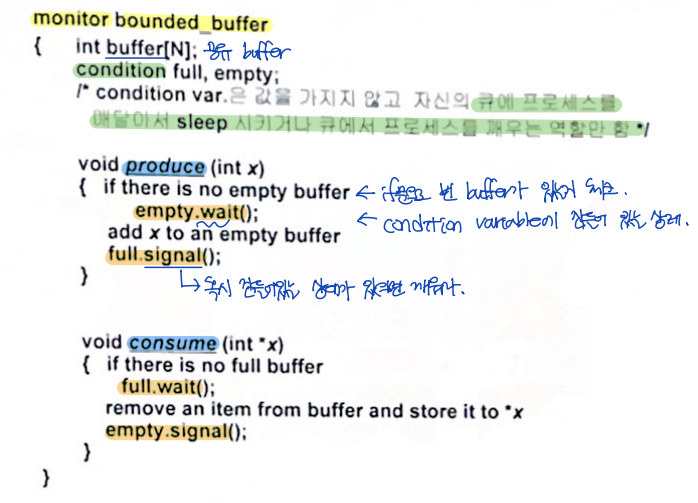 monitor bounded_buffer
{ int buffer[N]; 공유 buffer
condition full, empty;
/* condition var.은 값을 가지지 않고 자신의 큐에 프로세스를
매달아서 sleep 시키거나 큐에서 프로세스를 깨우는 역할만 함 */
void produce (int x)
{ if there is no empty buffer ← 빈 buffer가 있는지
empty.wait(); ← condition variable에 잠들어 있는 상태.
add x to an empty buffer
full.signal();
} ↳ 혹시 잠들어있는 있으면 깨운다.
void consume (int *x)
{ if there is no full buffer
full.wait();
remove an item from buffer and store it to *x
empty.signal();
}
}